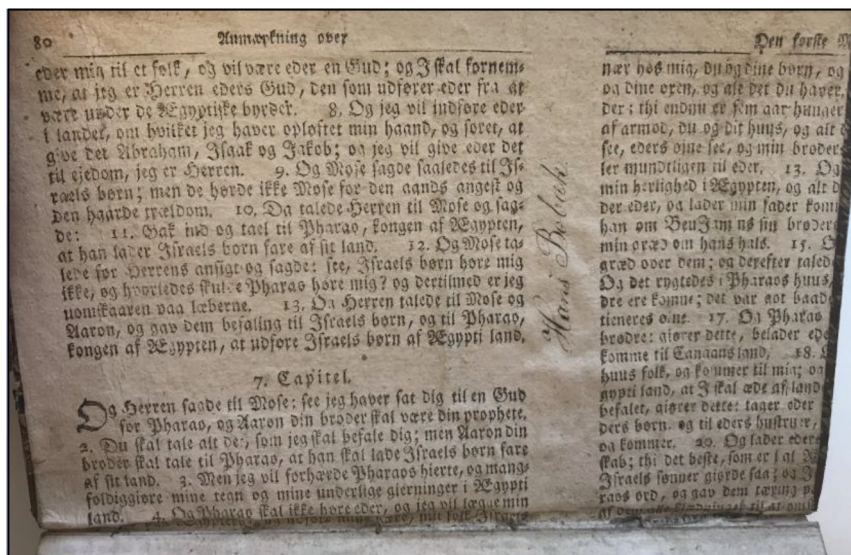 80 Anmærkning over
eder mig til et folk, og vil være eder en Gud; og I skal fornem-
me, at jeg er Herren eders Gud, den som udfører eder fra at
være under de Ægyptiske byrder. 8. Og jeg vil indføre eder
i landet, om hvilket jeg haver opløftet min haand, og soret, at
give det Abraham, Isaak og Jakob; og jeg vil give eder det
til ejedom, jeg er Herren. 9. Og Mose sagde saaledes til Is-
raels børn; men de hørde ikke Mose for den aands angest og
den haarde trældom. 10. Da talede Herren til Mose og sag-
de: 11. Gak ind og tael til Pharao, kongen af Ægypten,
at han lader Israels børn fare af sit land. 12. Og Mose ta-
lede for Herrens ansigt og sagde: see, Israels børn høre mig
ikke, og hvorledes skulde Pharao høre mig? og dertilmed er jeg
uomskaaren paa læberne. 13. Da Herren talede til Mose og
Aaron, og gav dem befaling til Israels børn, og til Pharao,
kongen af Ægypten, at udføre Israels børn af Ægypti land.
7. Capitel.
Og Herren sagde til Mose: see jeg haver sat dig til en Gud
for Pharao, og Aaron din broder skal være din prophete.
2. Du skal tale alt det, som jeg skal befale dig; men Aaron din
broder skal tale til Pharao, at han skal lade Israels børn fare
af sit land. 3. Men jeg vil forhærde Pharaos hierte, og mang-
foldiggiøre mine tegn og mine underlige gierninger i Ægypti
land. 4. Og Pharao skal ikke høre eder, og jeg vil lægge min
Hans
Den første
nær hos mig, du og dine børn, og
og dine øxen, og alt det du haver.
der; thi endnu er fem aar hunger
af armod, du og dit huus, og alt d
see, eders øine see, og min broders
ler mundtligen til eder. 13. Og
min herlighed i Ægypten, og alt d
der eder, og lader min fader komm
han om BenJamins sin broders
min græd om hans hals. 15. O
græd over dem; og derefter taled
Og det rygtedes i Pharaos huus,
dre ere komne; det var got baade
tieneres øine. 17. Og Pharao
brødre: giører dette, belader ede
komme til Canaans land. 18.
huus folk, og kommer til mig; og
gypti land, at I skal æde af lande
befalet, giører dette: tager eder
ders børn, og til eders hustruer,
og kommer. 20. Og lader eders
skab; thi det beste, som er i al Æ
Israels sønner giorde saa; og J
raos ord, og gav dem tæring p